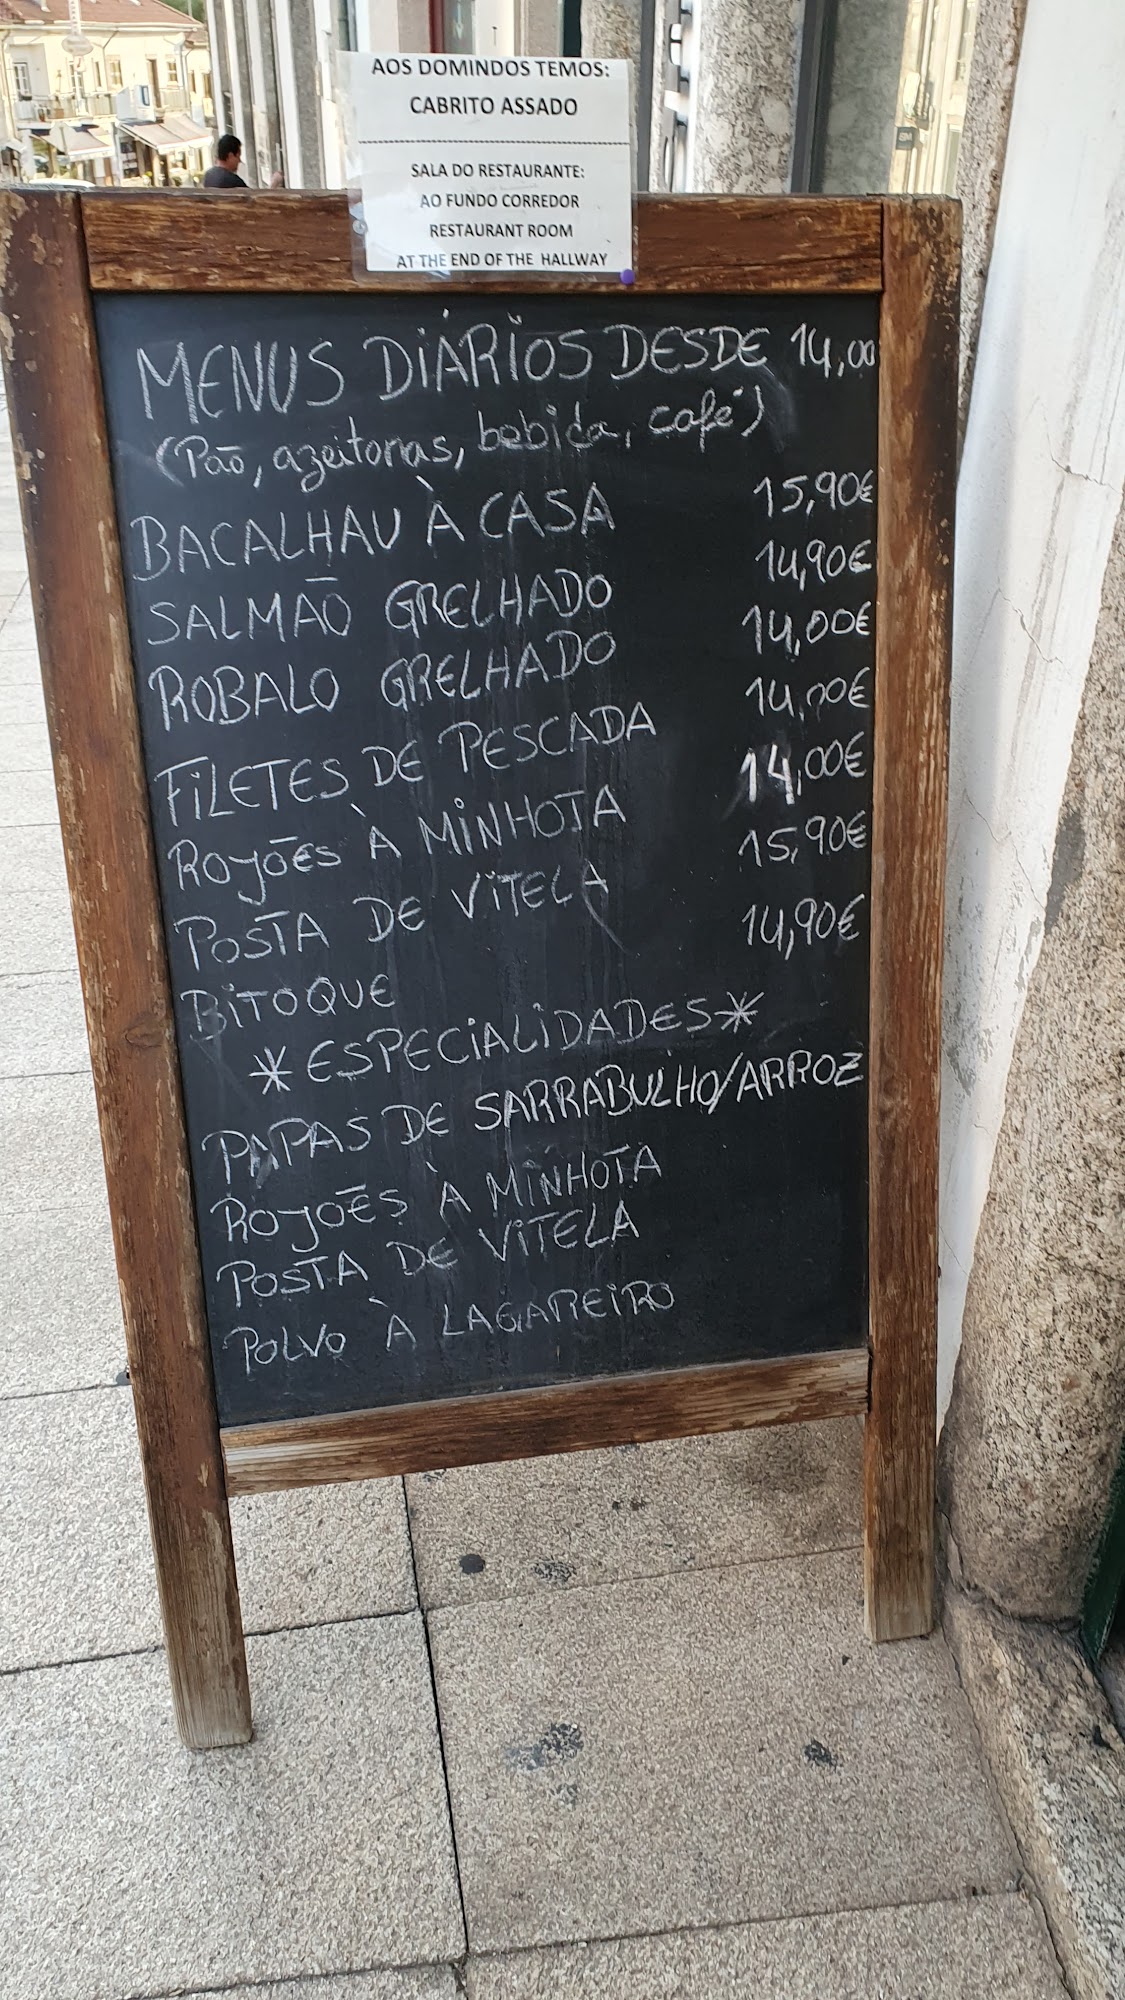 AOS DOMINDOS TEMOS:
CABRITO ASSADO
SALA DO RESTAURANTE:
AO FUNDO CORREDOR
RESTAURANT ROOM
AT THE END OF THE HALLWAY
MENUS DIÁRIOS DESDE 14,00
(Pão, azeitonas, bebida, café)
BACALHAU À CASA 15,90€
SALMÃO GRELHADO 14,90€
ROBALO GRELHADO 14,00€
FILETES DE PESCADA 14,00€
ROJÕES À MINHOTA 14,00€
POSTA DE VITELA 15,90€
BITOQUE 14,90€
*ESPECIALIDADES*
PAPAS DE SARRABULHO/ARROZ
ROJÕES À MINHOTA
POSTA DE VITELA
POLVO À LAGAREIRO